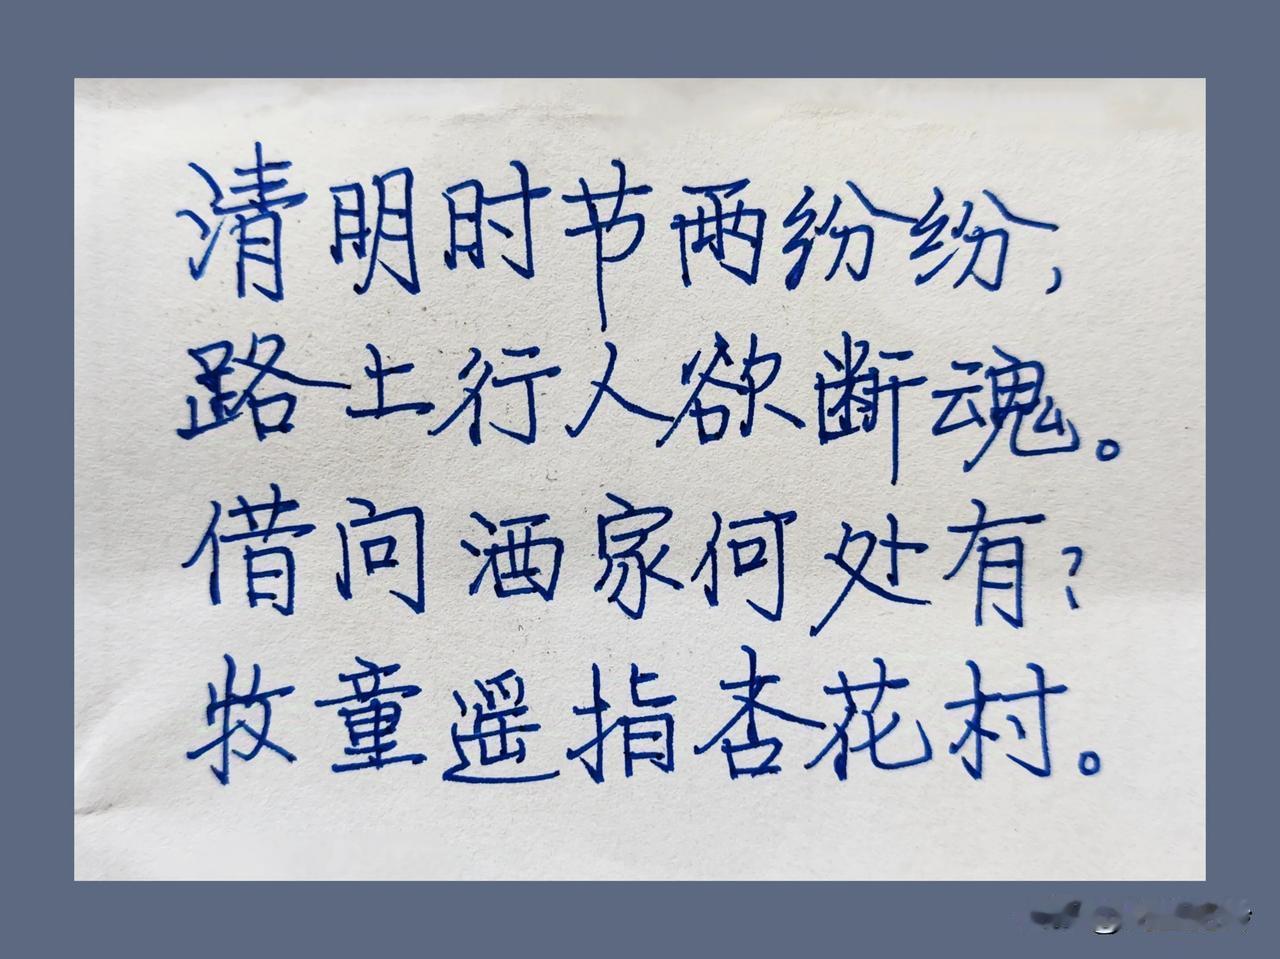 清明时节两纷纷，
路土行人欲断魂。
借问洒家何处有？
牧童遥指杏花村。